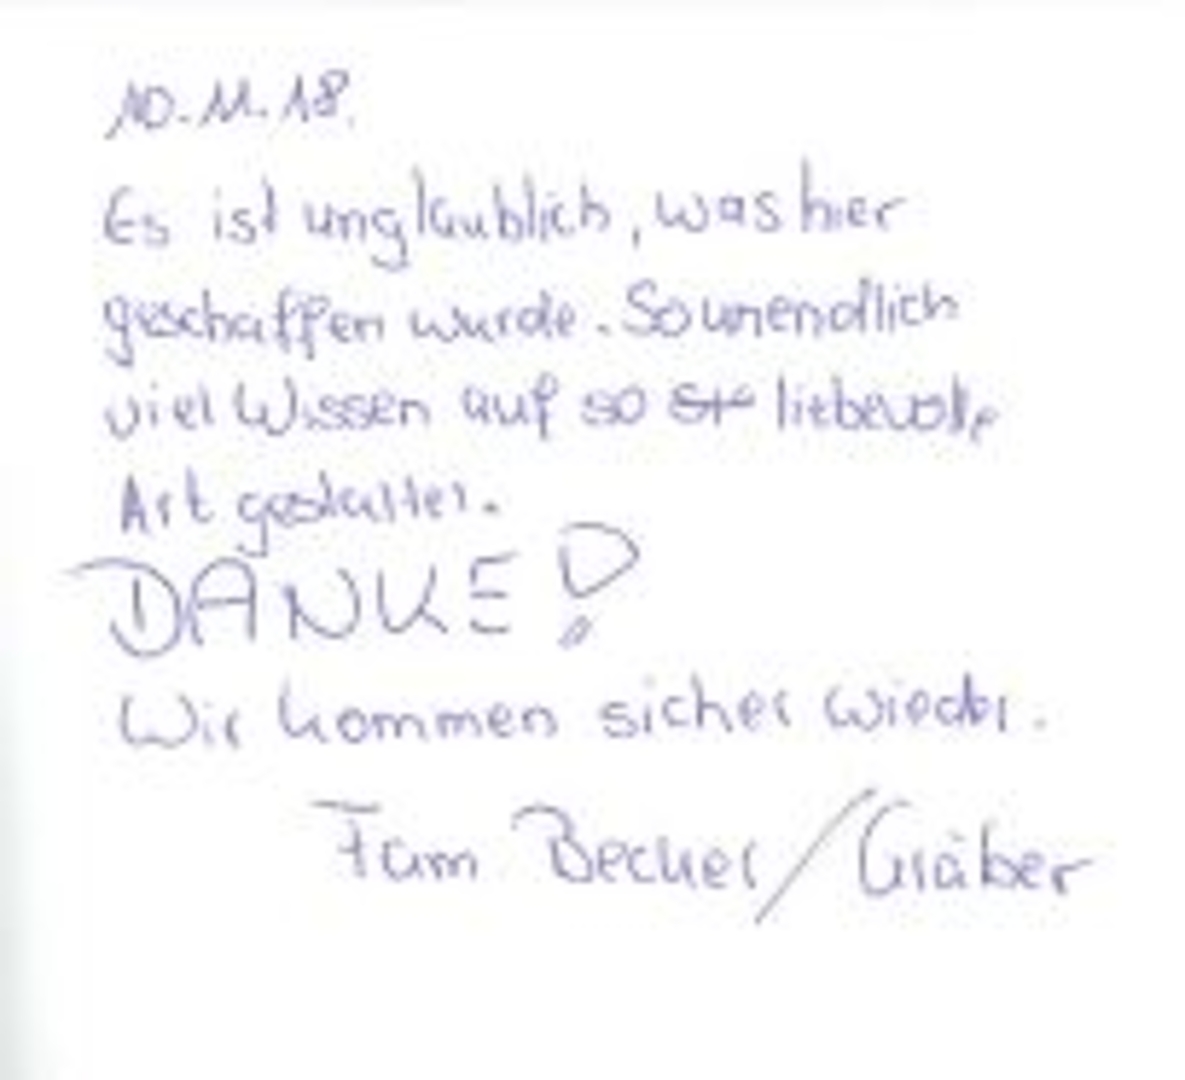 10.11.18.
Es ist unglaublich, was hier
geschaffen wurde. So unendlich
viel Wissen auf so liebevolle
Art gestaltet.
DANKE!
Wir kommen sicher wieder.
Fam Becker/Gräber